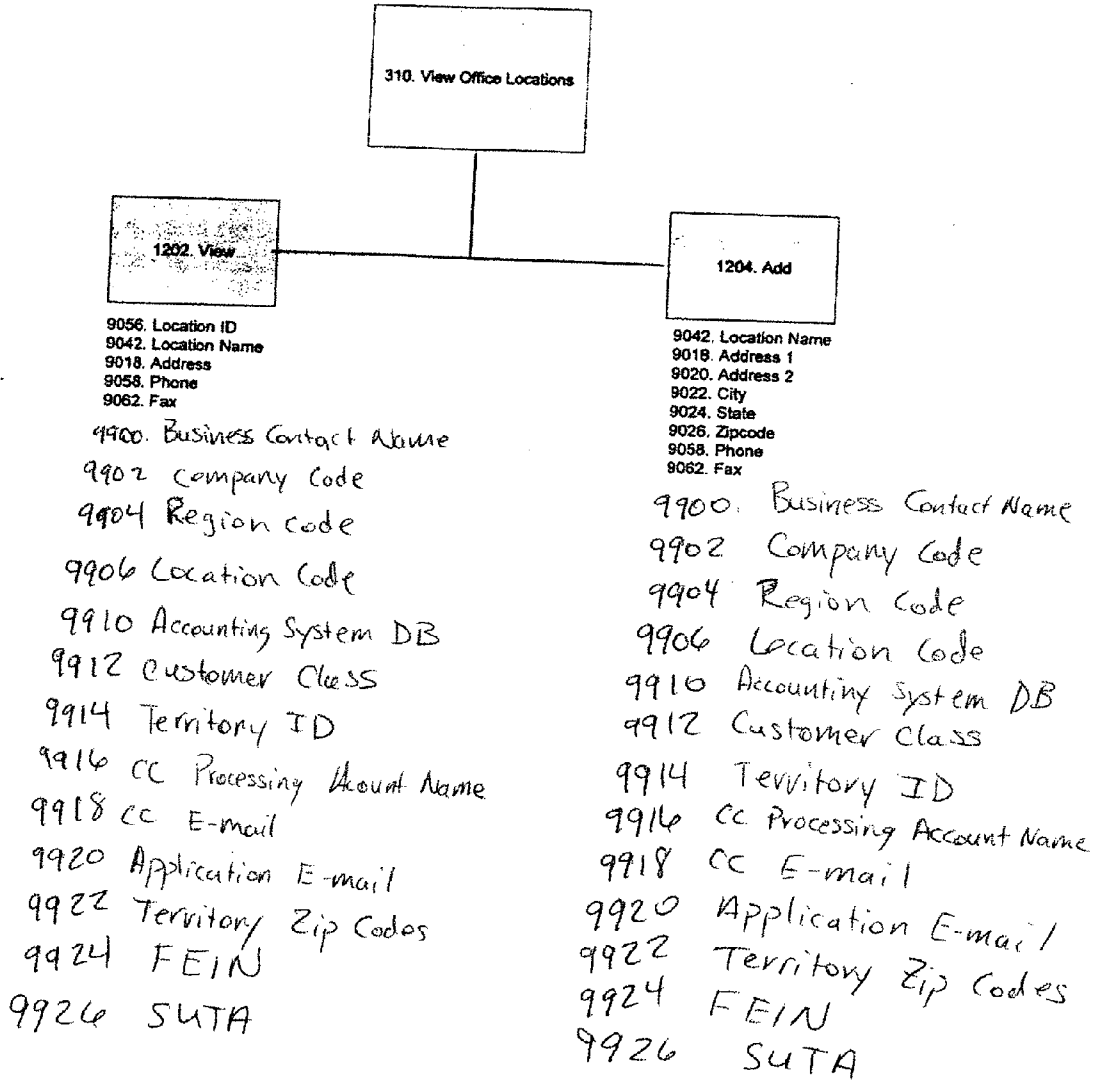 310. View Office Locations
1202. View
9056. Location ID
9042. Location Name
9018. Address
9058. Phone
9062. Fax
9900. Business Contact Name
9902 Company Code
9904 Region Code
9906 Location Code
9910 Accounting System DB
9912 Customer Class
9914 Territory ID
9916 CC Processing Account Name
9918 CC E-mail
9920 Application E-mail
9922 Territory Zip Codes
9924 FEIN
9926 SUTA
1204. Add
9042. Location Name
9018. Address 1
9020. Address 2
9022. City
9024. State
9026. Zipcode
9058. Phone
9062. Fax
9900. Business Contact Name
9902 Company Code
9904 Region Code
9906 Location Code
9910 Accounting System DB
9912 Customer Class
9914 Territory ID
9916 CC Processing Account Name
9918 CC E-mail
9920 Application E-mail
9922 Territory Zip Codes
9924 FEIN
9926 SUTA